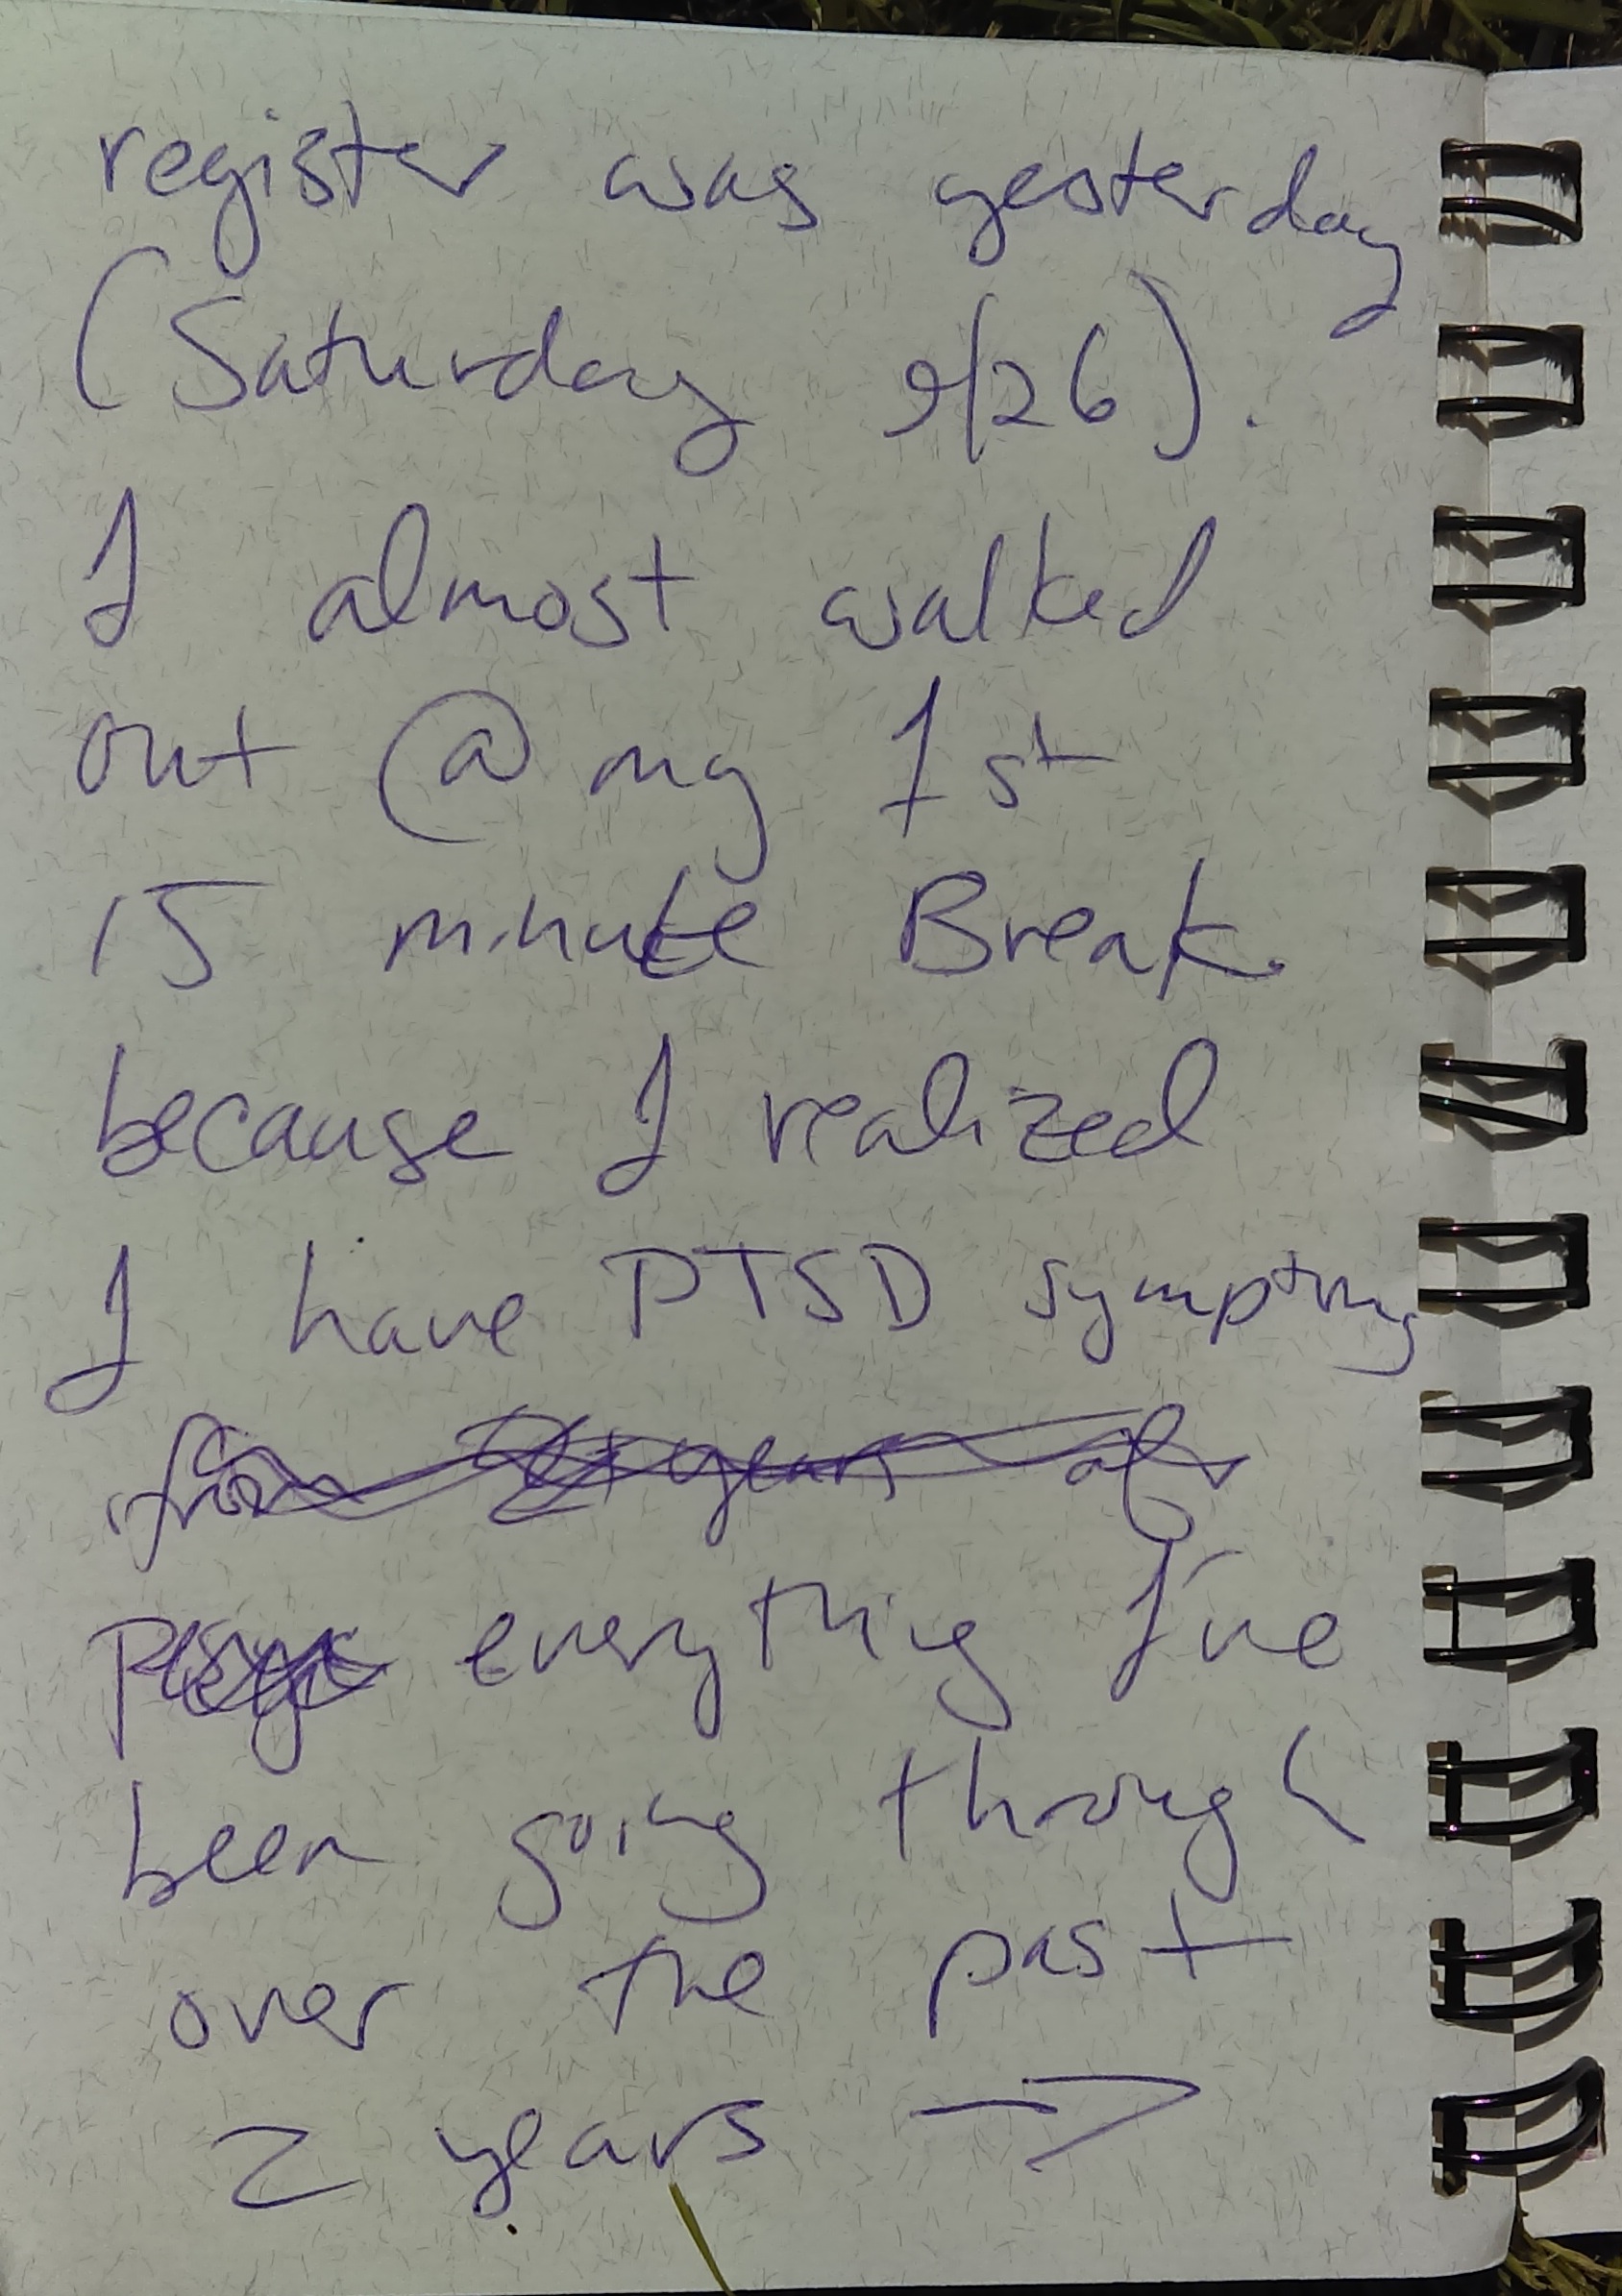 register was yesterday
(Saturday 9/26).
I almost walked
out @ my 1st
15 minute Break.
because I realized
I have PTSD symptoms
from years of
everything I've
been going through
over the past
2 years →